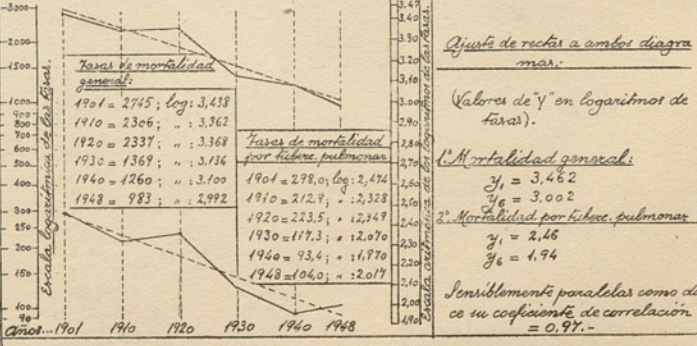 3000
2000
1000
900
800
700
600
500
400
300
250
200
150
100
90
Escala logarítmica de las tasas.
Años... 1901 1910 1920 1930 1940 1948
Tasas de mortalidad
general:
1901 = 2745; log: 3,438
1910 = 2306; " : 3,362
1920 = 2337; " : 3.368
1930 = 1369; " : 3.136
1940 = 1260; " : 3.100
1948 = 983; " : 2,992
Tasas de mortalidad
por tuberc. pulmonar
1901 = 298,0; log: 2,474
1910 = 212,9; " : 2,328
1920 = 223,5; " : 2,349
1930 = 117,3; " : 2,070
1940 = 93,4; " : 1,970
1948 = 104,0; " : 2.017
3.47
3.40
3,30
3,20
3,10
3.00
2,90
2,80
2,70
2,60
2,50
2,40
2,30
2,20
2,10
2,00
1,90
Escala aritmética de los logaritmos de las tasas.
Ajuste de rectas a ambos diagra
mas.:
(Valores de "y" en logaritmos de
tasas).
1º Mortalidad general:
y₁ = 3,462
y₆ = 3,002
2º Mortalidad por tuberc. pulmonar
y₁ = 2,46
y₆ = 1,94
Sensiblemente paralelas como di
ce su coeficiente de correlación
= 0,97.-